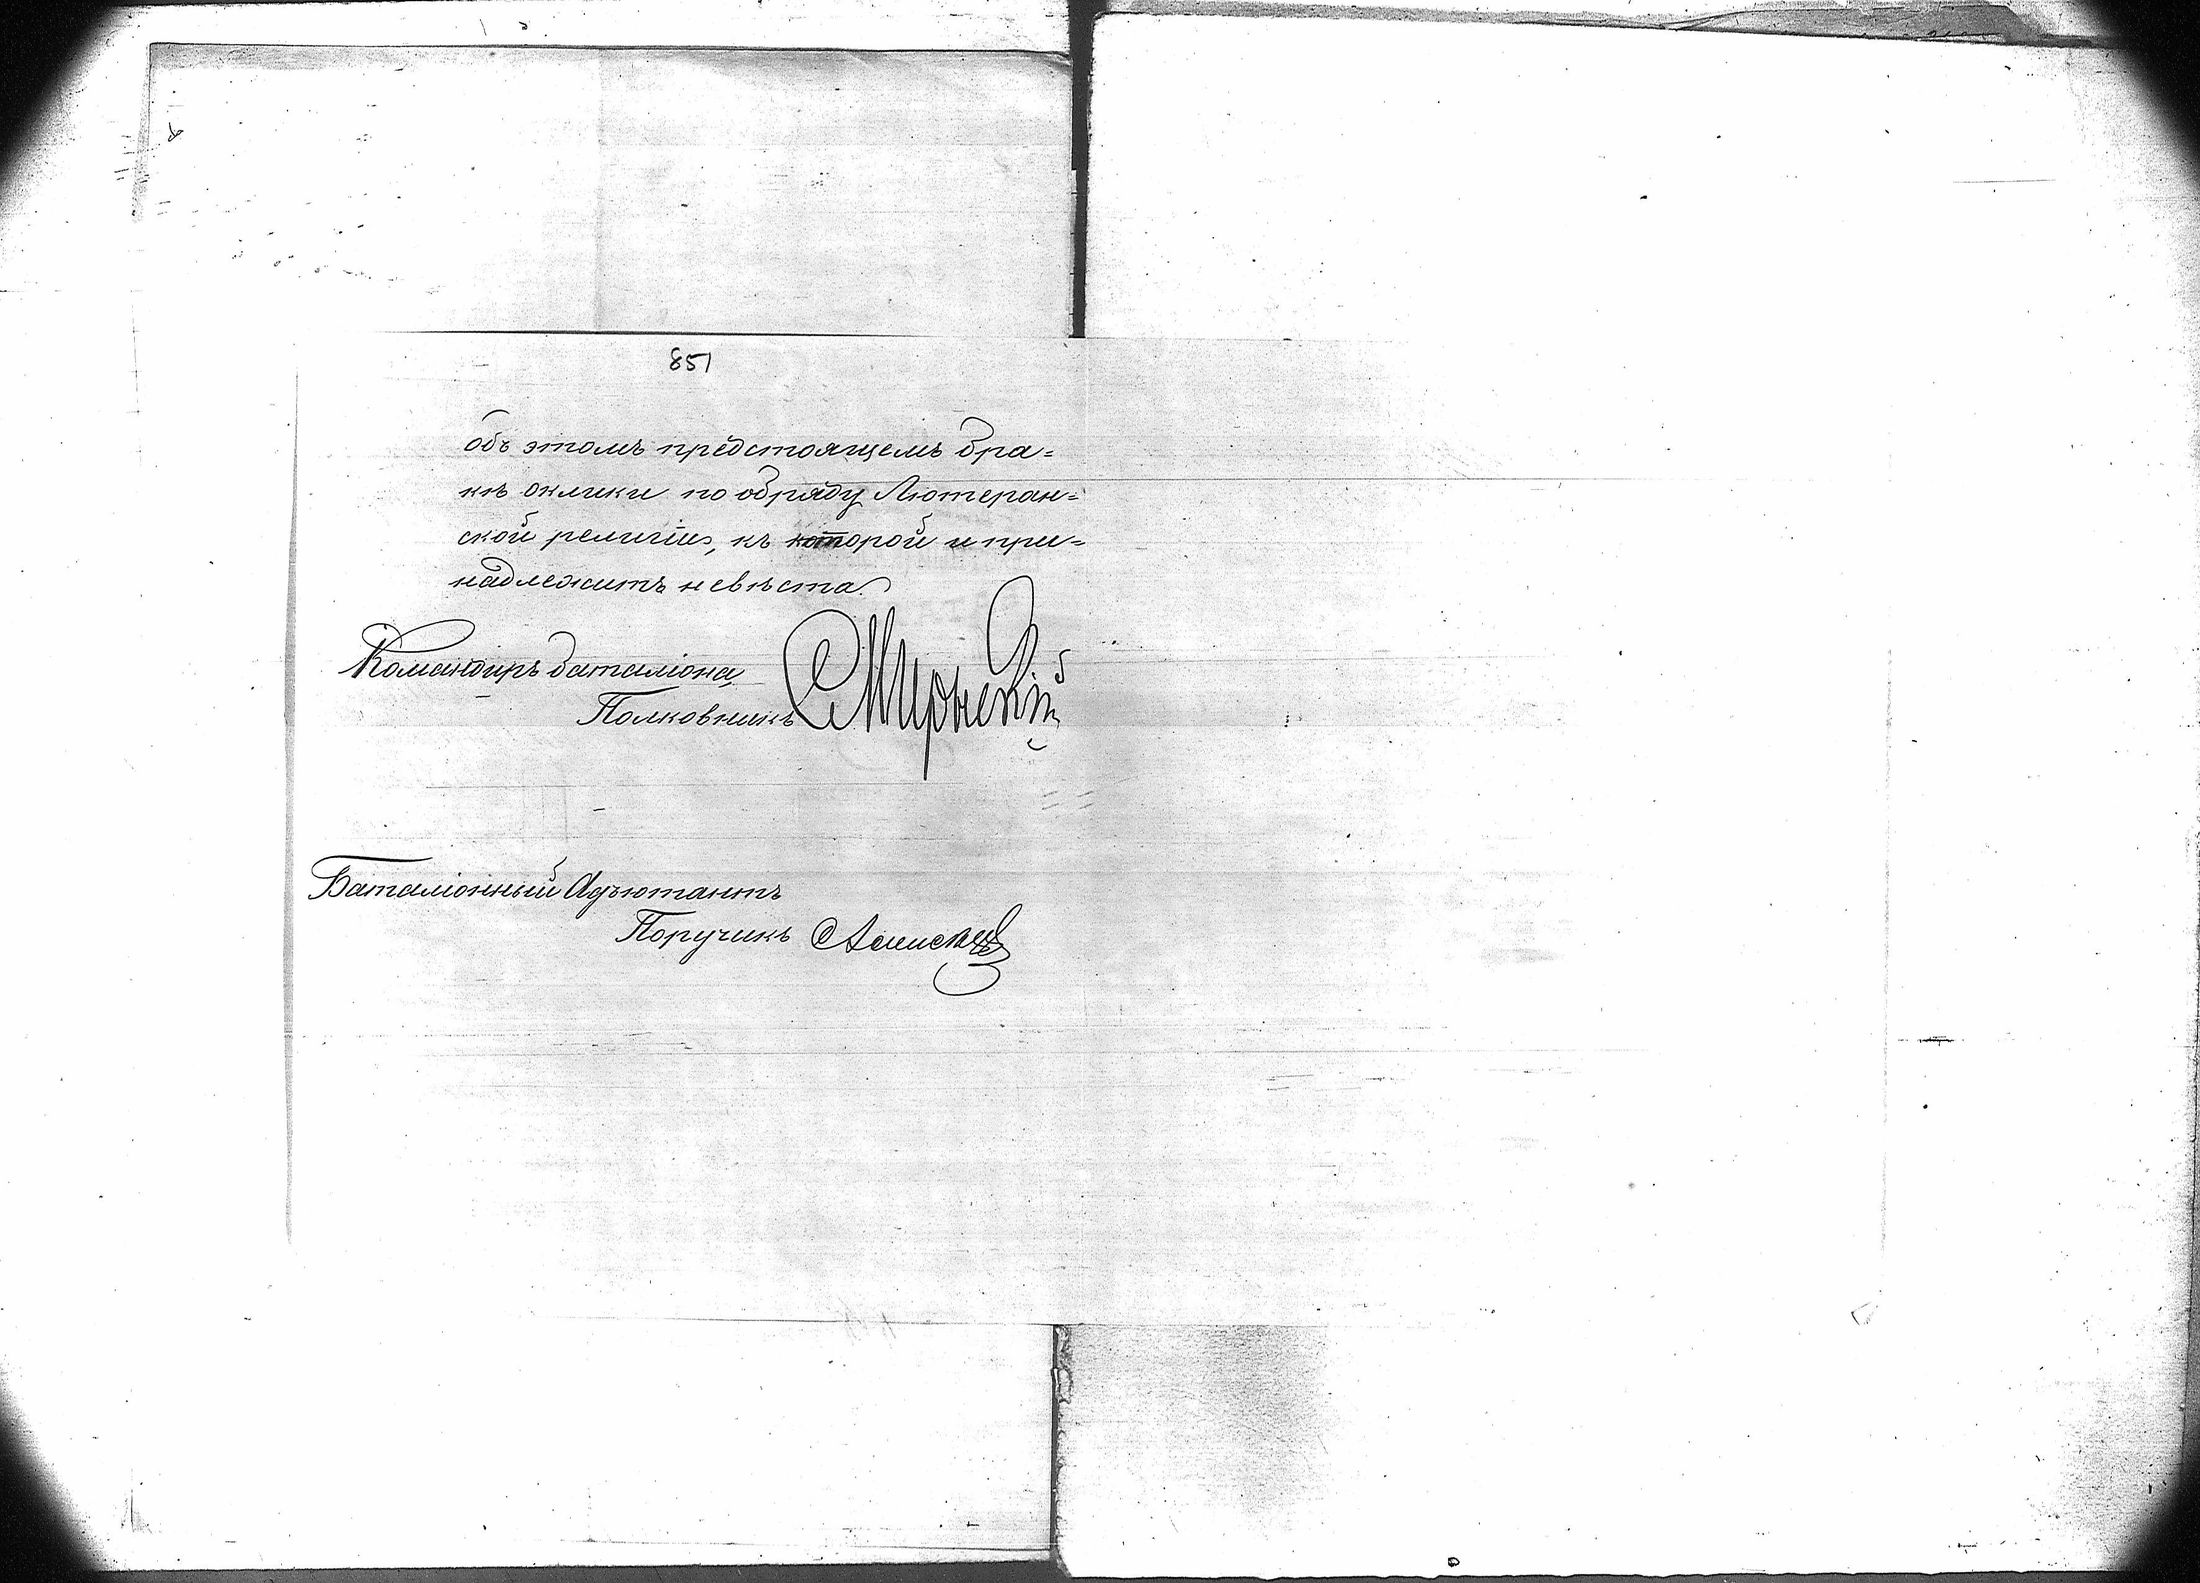 851
объ этомъ предстоящемъ бра=
кѣ оклики по обряду Лютеран=
ской религіи, къ которой и при=
надлежитъ невѣста.
Командиръ баталіона,
Полковникъ
Баталіонный Адъютантъ
Поручикъ